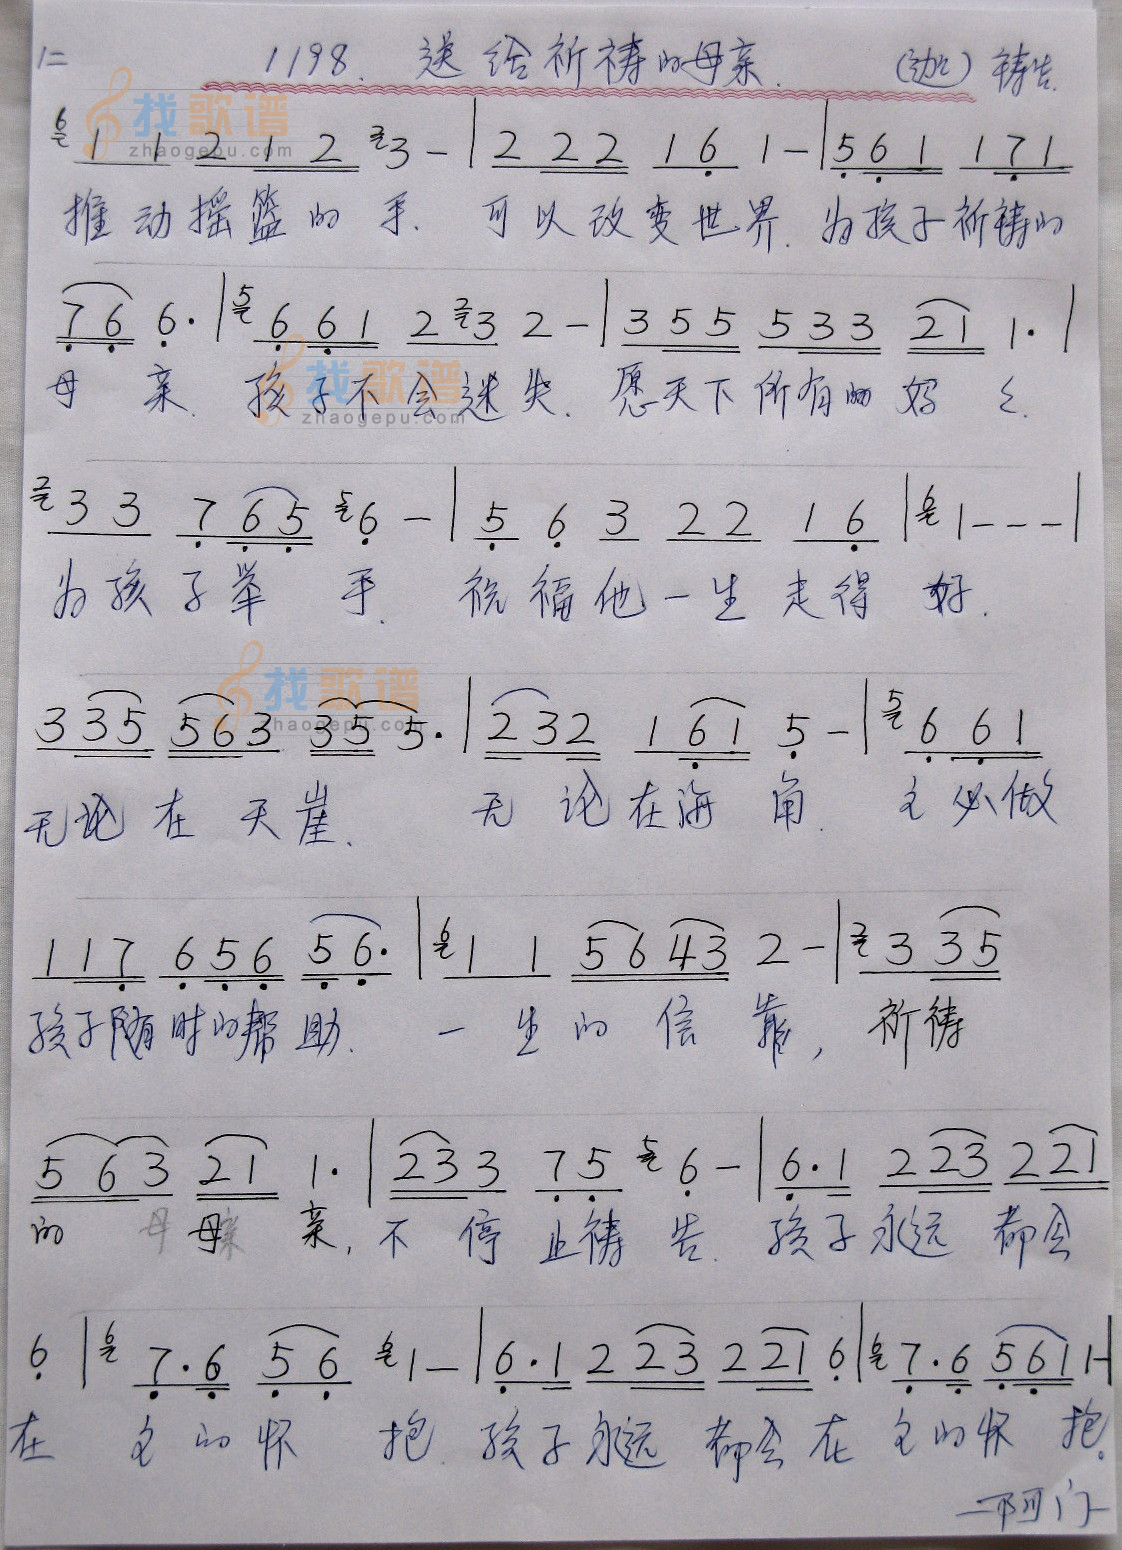 1= 1198. 送给祈祷的母亲. (迦) 祷告.
找歌谱
zhaogepu.com
6 1 1 2 1 2 2 3 - | 2 2 2 2 1 6 1 - | 5 6 1 1 7 1
推动摇篮的手. 可以改变世界. 为孩子祈祷的
7 6 6· | 5 6 6 1 2 2 3 2 - | 3 5 5 5 3 3 2 1 1· |
母 亲. 孩子不会迷失. 愿天下所有的妈 々.
找歌谱
zhaogepu.com
2 3 3 7 6 5 5 6 - | 5 6 3 2 2 1 6 | 6 1 - - - |
为孩子举 手. 祝福他一生走得 好.
找歌谱
zhaogepu.com
3 3 5 5 6 3 3 5 5· | 2 3 2 1 6 1 5 - | 5 6 6 1
无论在天崖. 无论在海角. 主必做
1 1 7 6 5 6 5 6· | 6 1 1 5 6 4 3 2 - | 2 3 3 5
孩子随时的帮助. 一生的信靠, 祈祷
5 6 3 2 1 1· | 2 3 3 7 5 5 6 - | 6·1 2 2 3 2 2 1
的 母 亲, 不停止祷告. 孩子永远都会
6 | 6 7·6 5 6 6 1 - | 6·1 2 2 3 2 2 1 6 | 6 7·6 5 6 1 1 -|
在 主的怀 抱. 孩子永远 都会在主的怀 抱.
—阿门—